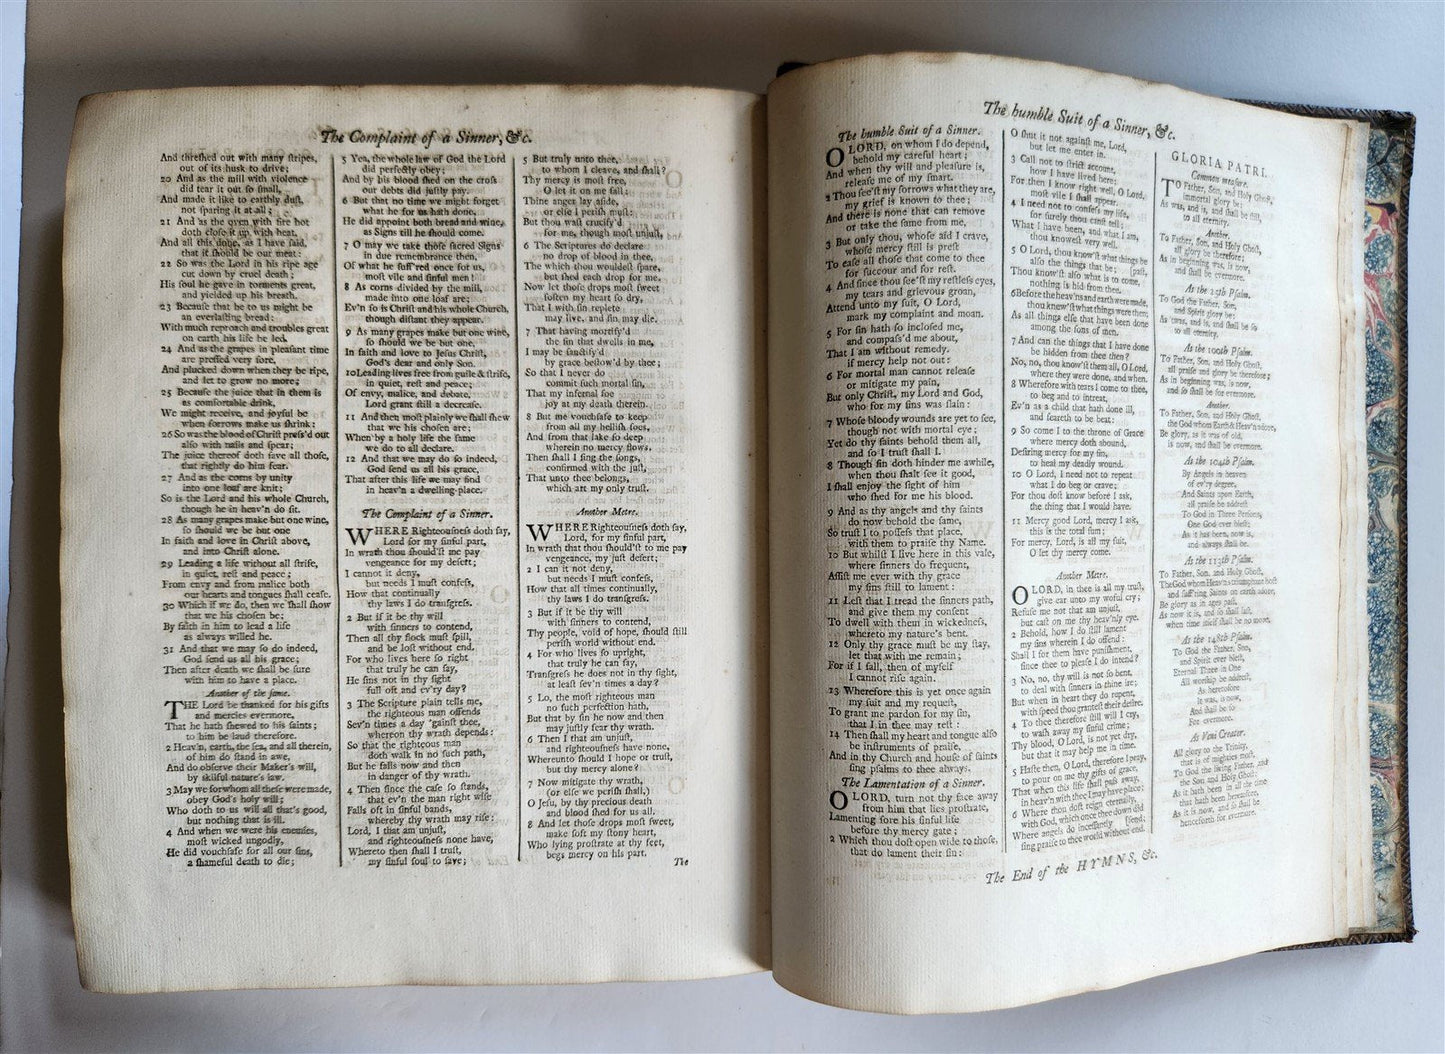 The Complaint of a Sinner, &c.
And threſhed out with many ſtripes,
out of its husk to drive;
20 And as the mill with violence
did tear it out ſo ſmall,
And made it like to earthly duſt,
not ſparing it at all;
21 And as the oven with fire hot
doth cloſe it up with heat,
And all this done, as I have ſaid,
that it ſhould be our meat:
22 So was the Lord in his ripe age
cut down by cruel death;
His ſoul he gave in torments great,
and yielded up his breath.
23 Becauſe that he to us might be
an everlaſting bread:
With much reproach and troubles great
on earth his life he led.
24 And as the grapes in pleaſant time
are preſſed very ſore,
And plucked down when they be ripe,
and let to grow no more;
25 Becauſe the juice that in them is
as comfortable drink,
We might receive, and joyful be
when ſorrows make us ſhrink:
26 So was the blood of Chriſt preſs'd out
alſo with nails and ſpear;
The juice thereof doth ſave all thoſe,
that rightly do him fear.
27 And as the corns by unity
into one loaf are knit;
So is the Lord and his whole Church,
though he in heav'n do ſit.
28 As many grapes make but one wine,
ſo ſhould we be but one
In faith and love in Chriſt above,
and unto Chriſt alone.
29 Leading a life without all ſtrife,
in quiet, reſt and peace;
From envy and from malice both
our hearts and tongues ſhall ceaſe.
30 Which if we do, then we ſhall ſhow
that we his choſen be;
By faith in him to lead a life
as always willed he.
31 And that we may ſo do indeed,
God ſend us all his grace;
Then after death we ſhall be ſure
with him to have a place.
Another of the ſame.
THE Lord be thanked for his gifts
and mercies evermore,
That he hath ſhewed to his ſaints;
to him be laud therefore.
2 Heav'n, earth, the ſea, and all therein,
of him do ſtand in awe,
And do obſerve their Maker's will,
by skilful nature's law.
3 May we for whom all theſe were made,
obey God's holy will;
Who doth to us will all that's good,
but nothing that is ill.
4 And when we were his enemies,
moſt wicked ungodly,
He did vouchſafe for all our ſins,
a ſhameful death to die;
5 Yea, the whole law of God the Lord
did perfectly obey;
And by his blood ſhed on the croſs
our debts did juſtly pay.
6 But that no time we might forget
what he for us hath done,
He did appoint both bread and wine,
as Signs till he ſhould come.
7 O may we take thoſe ſacred Signs
in due remembrance then,
Of what he ſuff'red once for us,
moſt vile and ſinful men!
8 As corns divided by the mill,
made into one loaf are;
Ev'n ſo is Chriſt and his whole Church,
though diſtant they appear.
9 As many grapes make but one wine,
ſo ſhould we be but one,
In faith and love to Jeſus Chriſt,
God's dear and only Son.
10 Leading lives free from guile & ſtrife,
in quiet, reſt and peace;
Of envy, malice, and debate,
Lord grant ſtill a decreaſe.
11 And then moſt plainly we ſhall ſhew
that we his choſen are;
When by a holy life the ſame
we do to all declare.
12 And that we may do ſo indeed,
God ſend us all his grace,
That after this life we may find
in heav'n a dwelling-place.
The Complaint of a Sinner.
WHERE Righteouſneſs doth ſay,
Lord for my ſinful part,
In wrath thou ſhould'ſt me pay
vengeance for my deſert;
I cannot it deny,
but needs I muſt confeſs,
How that continually
thy laws I do tranſgreſs.
2 But if it be thy will
with ſinners to contend,
Then all thy flock muſt ſpill,
and be loſt without end.
For who lives here ſo right
that truly he can ſay,
He ſins not in thy ſight
full oft and ev'ry day?
3 The Scripture plain tells me,
the righteous man offends
Sev'n times a day 'gainſt thee,
whereon thy wrath depends:
So that the righteous man
doth walk in no ſuch path,
But he falls now and then
in danger of thy wrath.
4 Then ſince the caſe ſo ſtands,
that ev'n the man right wiſe
Falls oft in ſinful bands,
whereby thy wrath may riſe:
Lord, I that am unjuſt,
and righteouſneſs none have,
Whereto then ſhall I truſt,
my ſinful ſoul to ſave;
5 But truly unto thee,
to whom I cleave, and ſhall?
Thy mercy is moſt free,
O let it on me fall:
Thine anger lay aſide,
or elſe I periſh muſt:
But thou waſt crucify'd
for me, though moſt unjuſt,
6 The Scriptures do declare
no drop of blood in thee,
The which thou wouldeſt ſpare,
but ſhed each drop for me.
Now let thoſe drops moſt ſweet
ſoften my heart ſo dry,
That I with ſin replete
may live, and ſin may die.
7 That having mortify'd
the ſin that dwells in me,
I may be ſanctify'd
by grace beſtow'd by thee;
So that I never do
commit ſuch mortal ſin,
That my infernal foe
joy at my death therein.
8 But me vouchſafe to keep
from all my helliſh foes,
And from that lake ſo deep
wherein no mercy flows.
Then ſhall I ſing the ſongs,
confirmed with the juſt,
That unto thee belongs,
which art my only truſt.
Another Metre.
WHERE Righteouſneſs doth ſay,
Lord, for my ſinful part,
In wrath that thou ſhould'ſt to me pay
vengeance, my juſt deſert;
2 I can it not deny,
but needs I muſt confeſs,
How that all times continually,
thy laws I do tranſgreſs.
3 But if it be thy will
with ſinners to contend,
Thy people, void of hope, ſhould ſtill
periſh world without end.
4 For who lives ſo upright,
that truly he can ſay,
Tranſgreſs he does not in thy ſight,
at leaſt ſev'n times a day?
5 Lo, the moſt righteous man
no ſuch perfection hath,
But that by ſin he now and then
may juſtly fear thy wrath.
6 Then I that am unjuſt,
and righteouſneſs have none,
Whereunto ſhould I hope or truſt,
but thy mercy alone?
7 Now mitigate thy wrath,
(or elſe we periſh ſhall,)
O Jeſu, by thy precious death
and blood ſhed for us all.
8 And let thoſe drops moſt ſweet,
make ſoft my ſtony heart,
Who lying proſtrate at thy feet,
begs mercy on his part.
The
The humble Suit of a Sinner, &c.
The humble Suit of a Sinner.
O LORD, on whom I do depend,
behold my careful heart;
And when thy will and pleaſure is,
releaſe me of my ſmart.
2 Thou ſee'ſt my ſorrows what they are,
my grief is known to thee;
And there is none that can remove
or take the ſame from me,
3 But only thou, whoſe aid I crave,
whoſe mercy ſtill is preſt
To eaſe all thoſe that come to thee
for ſuccour and for reſt.
4 And ſince thou ſee'ſt my reſtleſs eyes,
my tears and grievous groan,
Attend unto my ſuit, O Lord,
mark my complaint and moan.
5 For ſin hath ſo incloſed me,
and compaſs'd me about,
That I am without remedy,
if mercy help not out:
6 For mortal man cannot releaſe
or mitigate my pain,
But only Chriſt, my Lord and God,
who for my ſins was ſlain:
7 Whoſe bloody wounds are yet to ſee,
though not with mortal eye;
Yet do thy ſaints behold them all,
and ſo I truſt ſhall I.
8 Though ſin doth hinder me awhile,
when thou ſhalt ſee it good,
I ſhall enjoy the ſight of him
who ſhed for me his blood.
9 And as thy angels and thy ſaints
do now behold the ſame,
So truſt I to poſſeſs that place,
with them to praiſe thy Name.
10 But whilſt I live here in this vale,
where ſinners do frequent,
Aſſiſt me ever with thy grace
my ſins ſtill to lament:
11 Leſt that I tread the ſinners path,
and give them my conſent
To dwell with them in wickedneſs,
whereto my nature's bent.
12 Only thy grace muſt be my ſtay,
let that with me remain;
For if I fall, then of myſelf
I cannot riſe again.
13 Wherefore this is yet once again
my ſuit and my requeſt,
To grant me pardon for my ſin,
that I in thee may reſt:
14 Then ſhall my heart and tongue alſo
be inſtruments of praiſe,
And in thy Church and houſe of ſaints
ſing pſalms to thee always.
The Lamentation of a Sinner.
O LORD, turn not thy face away
from him that lies proſtrate,
Lamenting ſore his ſinful life
before thy mercy gate;
2 Which thou doſt open wide to thoſe,
that do lament their ſin:
O ſhut it not againſt me, Lord,
but let me enter in.
3 Call not to ſtrict account,
how I have lived here;
For then I know right well, O Lord,
moſt vile I ſhall appear.
4 I need not to confeſs my life,
for ſurely thou canſt tell;
What I have been, and what I am,
thou knoweſt very well.
5 O Lord, thou know'ſt what things be
alſo the things that be; [paſt,
Thou know'ſt alſo what is to come,
nothing is hid from thee.
6 Before the heav'ns and earth were made,
thou knew'ſt what things were then;
As all things elſe that have been done
among the ſons of men.
7 And can the things that I have done
be hidden from thee then?
No, no, thou know'ſt them all, O Lord,
where they were done, and when.
8 Wherefore with tears I come to thee,
to beg and to intreat,
Ev'n as a child that hath done ill,
and feareth to be beat:
9 So come I to the throne of Grace
where mercy doth abound,
Deſiring mercy for my ſin,
to heal my deadly wound.
10 O Lord, I need not to repeat
what I do beg or crave;
For thou doſt know before I aſk,
the thing that I would have.
11 Mercy good Lord, mercy I aſk,
this is the total ſum;
For mercy, Lord, is all my ſuit,
O let thy mercy come.
Another Metre.
O LORD, in thee is all my truſt,
give ear unto my woful cry;
Refuſe me not that am unjuſt,
but caſt on me thy heav'nly eye.
2 Behold, how I do ſtill lament
my ſins wherein I do offend:
Shall I for them have puniſhment,
ſince thee to pleaſe I do intend?
3 No, no, thy will is not ſo bent,
to deal with ſinners in thine ire;
But when in heart they do repent,
with ſpeed thou granteſt their deſire.
4 To thee therefore ſtill will I cry,
to waſh away my ſinful crime;
Thy blood, O Lord, is not yet dry,
but that it may help me in time.
5 Haſte then, O Lord, therefore I pray,
to pour on me thy gifts of grace,
That when this life ſhall paſs away,
in heav'n with thee I may have place;
6 Where thou doſt reign eternally,
with God, which once thee down did
Where angels do inceſſantly [ſend;
ſing praiſe to thee world without end.
GLORIA PATRI.
Common meaſure.
TO Father, Son, and Holy Ghoſt,
immortal glory be;
As was, and is, and ſhall be ſtill,
to all eternity.
Another.
To Father, Son, and Holy Ghoſt,
all glory be therefore;
As in beginning was, is now,
and ſhall be evermore.
As the 25th Pſalm.
To God the Father, Son,
and Spirit glory be;
As 'twas, and is, and ſhall be ſo
to all eternity.
As the 100th Pſalm.
To Father, Son, and Holy Ghoſt,
all praiſe and glory be therefore;
As in beginning was, is now,
and ſo ſhall be for evermore.
Another.
To Father, Son, and Holy Ghoſt,
the God whom Earth & Heav'n adore,
Be glory, as it was of old,
is now, and ſhall be evermore.
As the 104th Pſalm.
By Angels in heaven
of ev'ry degree,
And Saints upon Earth,
all praiſe be addreſt
To God in Three Perſons,
One God ever bleſt;
As it has been, now is,
and always ſhall be.
As the 113th Pſalm.
To Father, Son, and Holy Ghoſt,
The God whom Heav'n's triumphant hoſt
and ſuff'ring Saints on earth adore,
Be glory as in ages paſt,
As now it is, and ſo ſhall laſt
when time itſelf ſhall be no more.
As the 148th Pſalm.
To God the Father, Son,
and Spirit ever bleſt,
Eternal Three in One
All worſhip be addreſt,
As heretofore
It was, is now,
And ſhall be ſo
For evermore.
As Veni Creator.
All glory to the Trinity,
that is of mighties moſt,
To God the living Father, and
the Son and Holy Ghoſt:
As it hath been in all the time
that hath been heretofore,
As it is now, and ſo ſhall be
henceforth for evermore.
The End of the HYMNS, &c.